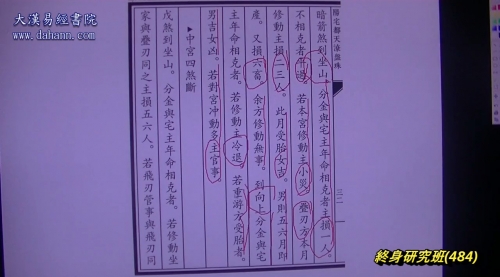 大漢易經書院
www.dahann.com
陽宅都天滾盤珠
三二
暗箭煞到坐山。分金與宅主年命相克者主損一人。
不相克平過。若本宮修動主小災。疊刃方本月
修動主損二三人。此月受胎女吉。男則五六月即
產。又損六畜。余方修動無事。到向上分金與宅
主年命相克者。若修動主冷退。若重游方受胎者。
男吉女凶。若對宮冲動多主官事。
▶中宮四煞斷
戊煞到坐山。分金與宅主年命相克者。若修動坐
家與疊刃同之主損五六人。若飛刃管事與飛刃同
終身研究班(484)